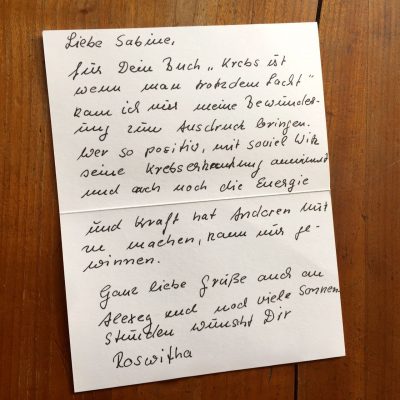 Liebe Sabine,
für Dein Buch „Krebs ist
wenn man trotzdem lacht"
kann ich nur meine Bewunder-
ung zum Ausdruck bringen.
Wer so positiv, mit soviel Witz
seine Krebserkrankung annimmt
und auch noch die Energie
und Kraft hat Anderen Mut
zu machen, kann nur ge-
winnen.
Ganz liebe Grüße auch an
und noch viele Sonnen
Stunden wünscht Dir
Roswitha